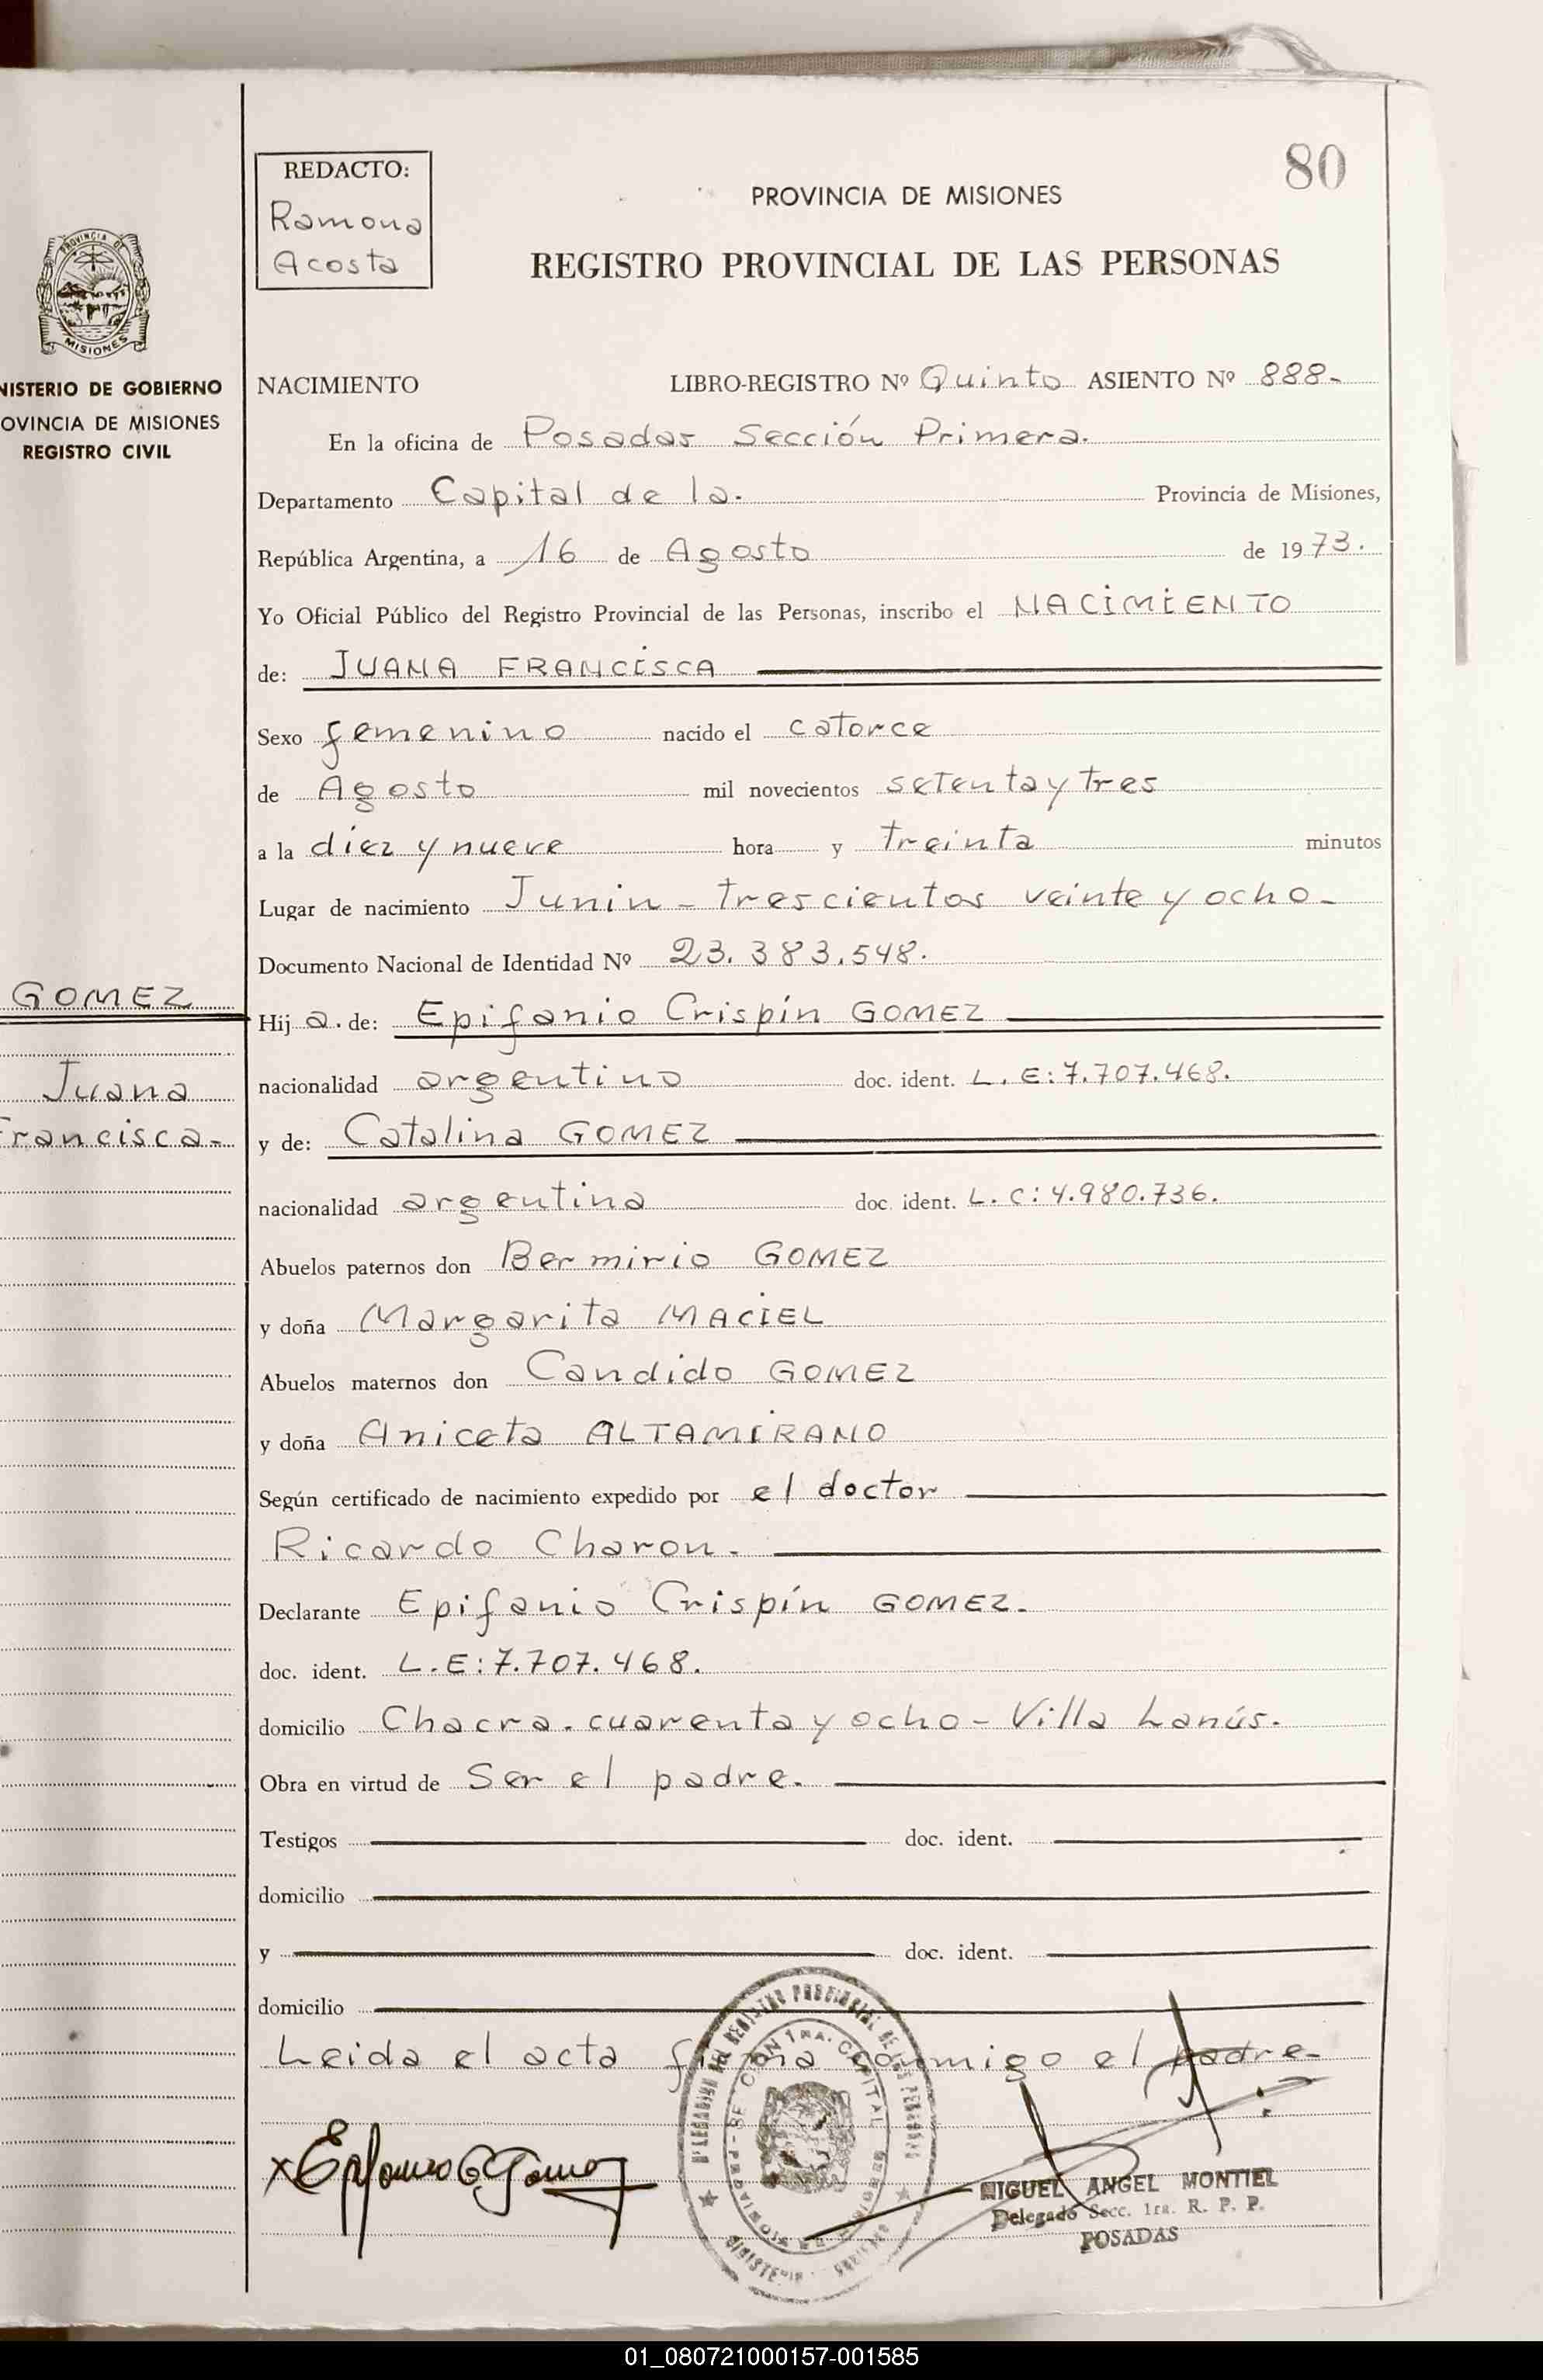 80
REDACTO:
Ramona
Acosta
PROVINCIA DE MISIONES
REGISTRO PROVINCIAL DE LAS PERSONAS
PROVINCIA DE
MISIONES
NISTERIO DE GOBIERNO
OVINCIA DE MISIONES
REGISTRO CIVIL
GOMEZ
Juana
Francisca-
NACIMIENTO LIBRO-REGISTRO Nº Quinto ASIENTO Nº 888-
En la oficina de Posadas Sección Primera.
Departamento Capital de la. Provincia de Misiones,
República Argentina, a 16 de Agosto de 1973.
Yo Oficial Público del Registro Provincial de las Personas, inscribo el NACIMIENTO
de: JUANA FRANCISCA
Sexo femenino nacido el catorce
de Agosto mil novecientos setenta y tres
a la diez y nueve hora y treinta minutos
Lugar de nacimiento Junin - trescientos veinte y ocho-
Documento Nacional de Identidad Nº 23.383.548.
Hij a. de: Epifanio Crispín GOMEZ
nacionalidad argentino doc. ident. L.E:7.707.468.
y de: Catalina GOMEZ
nacionalidad argentina doc. ident. L.C:4.980.736.
Abuelos paternos don Bermirio GOMEZ
y doña Margarita MACIEL
Abuelos maternos don Candido GOMEZ
y doña Aniceta ALTAMIRANO
Según certificado de nacimiento expedido por el doctor
Ricardo Charon.
Declarante Epifanio Crispín GOMEZ.
doc. ident. L.E:7.707.468.
domicilio Chacra. cuarenta y ocho - Villa Lanús.
Obra en virtud de Ser el padre.
Testigos doc. ident.
domicilio
y doc. ident.
domicilio
Leida el acta firma conmigo el padre-
MIGUEL ANGEL MONTIEL
Delegado Secc. 1ra. R. P. P.
POSADAS
01_080721000157-001585